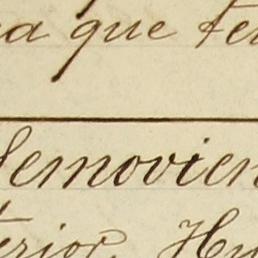 a que te
Semovien
terior, Hu